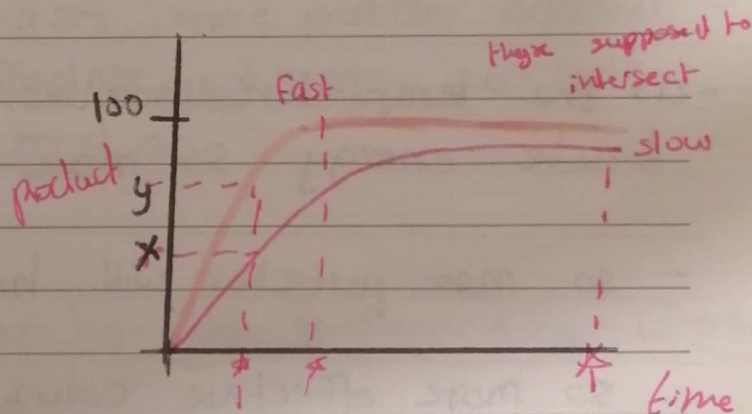 theyre supposed to
intersect
fast
100
slow
product
y
x
time